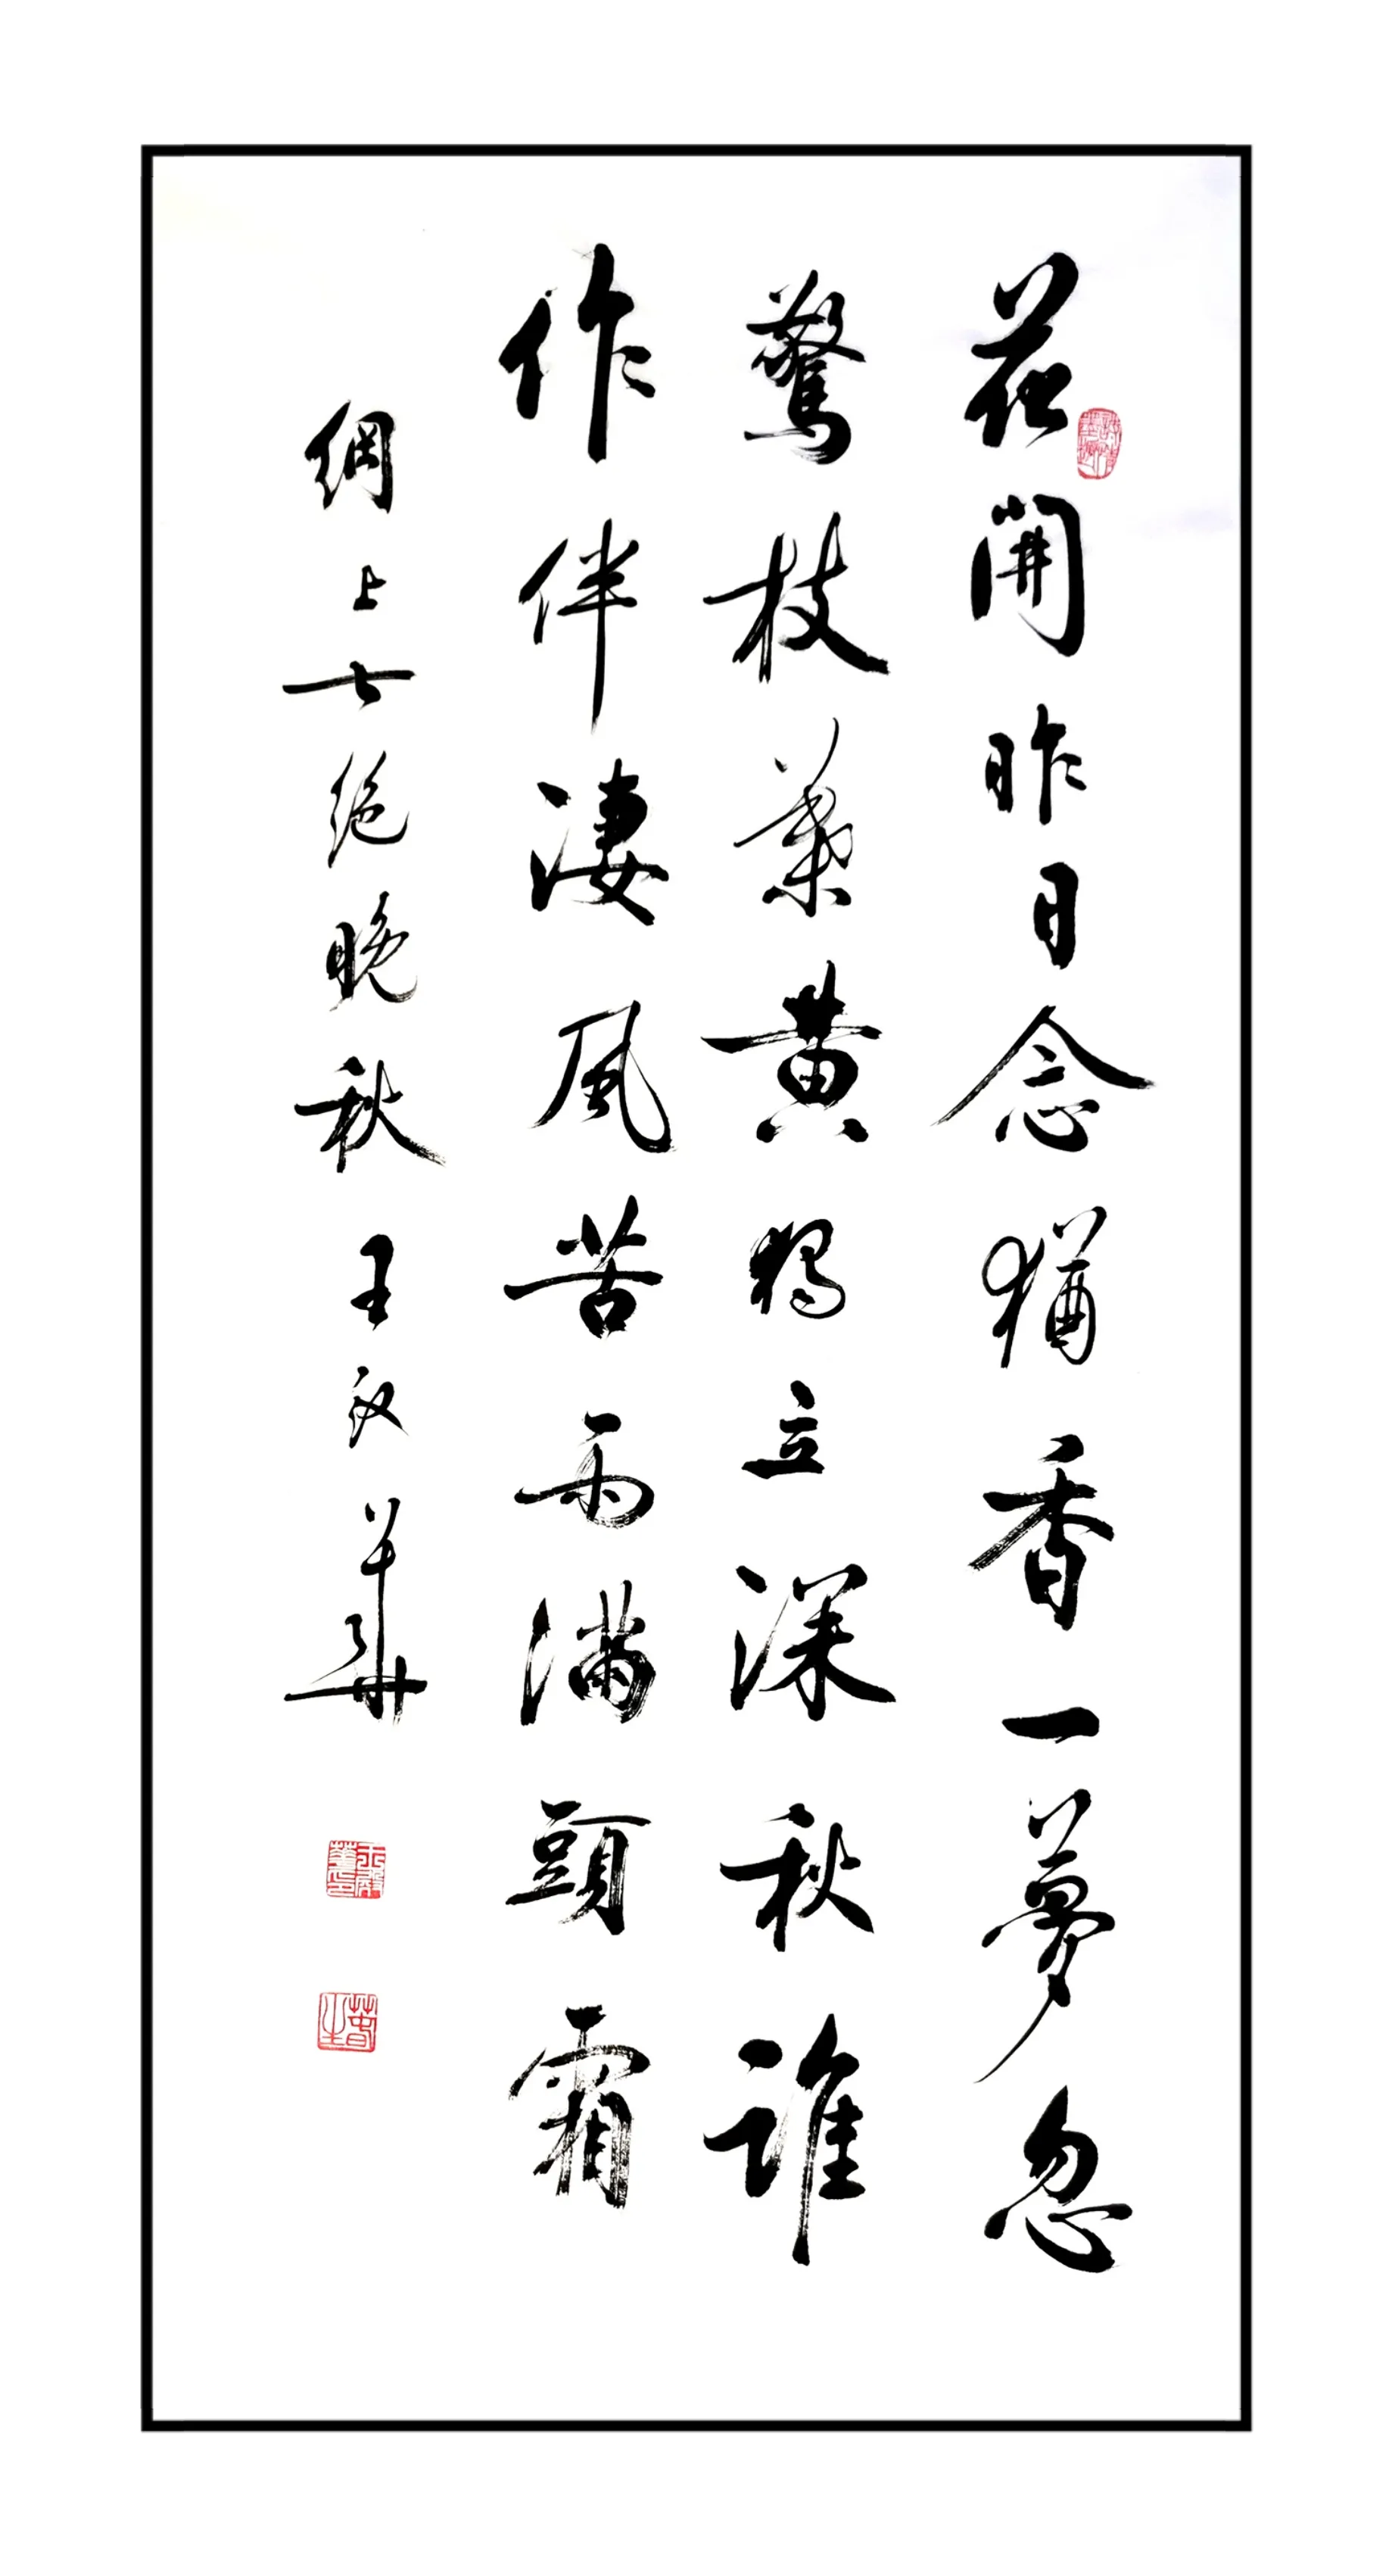 花開昨日念猶香一夢忽
驚枝葉黄獨立深秋誰
作伴淒風苦雨滿頭霜
網上七絕晚秋王汉華